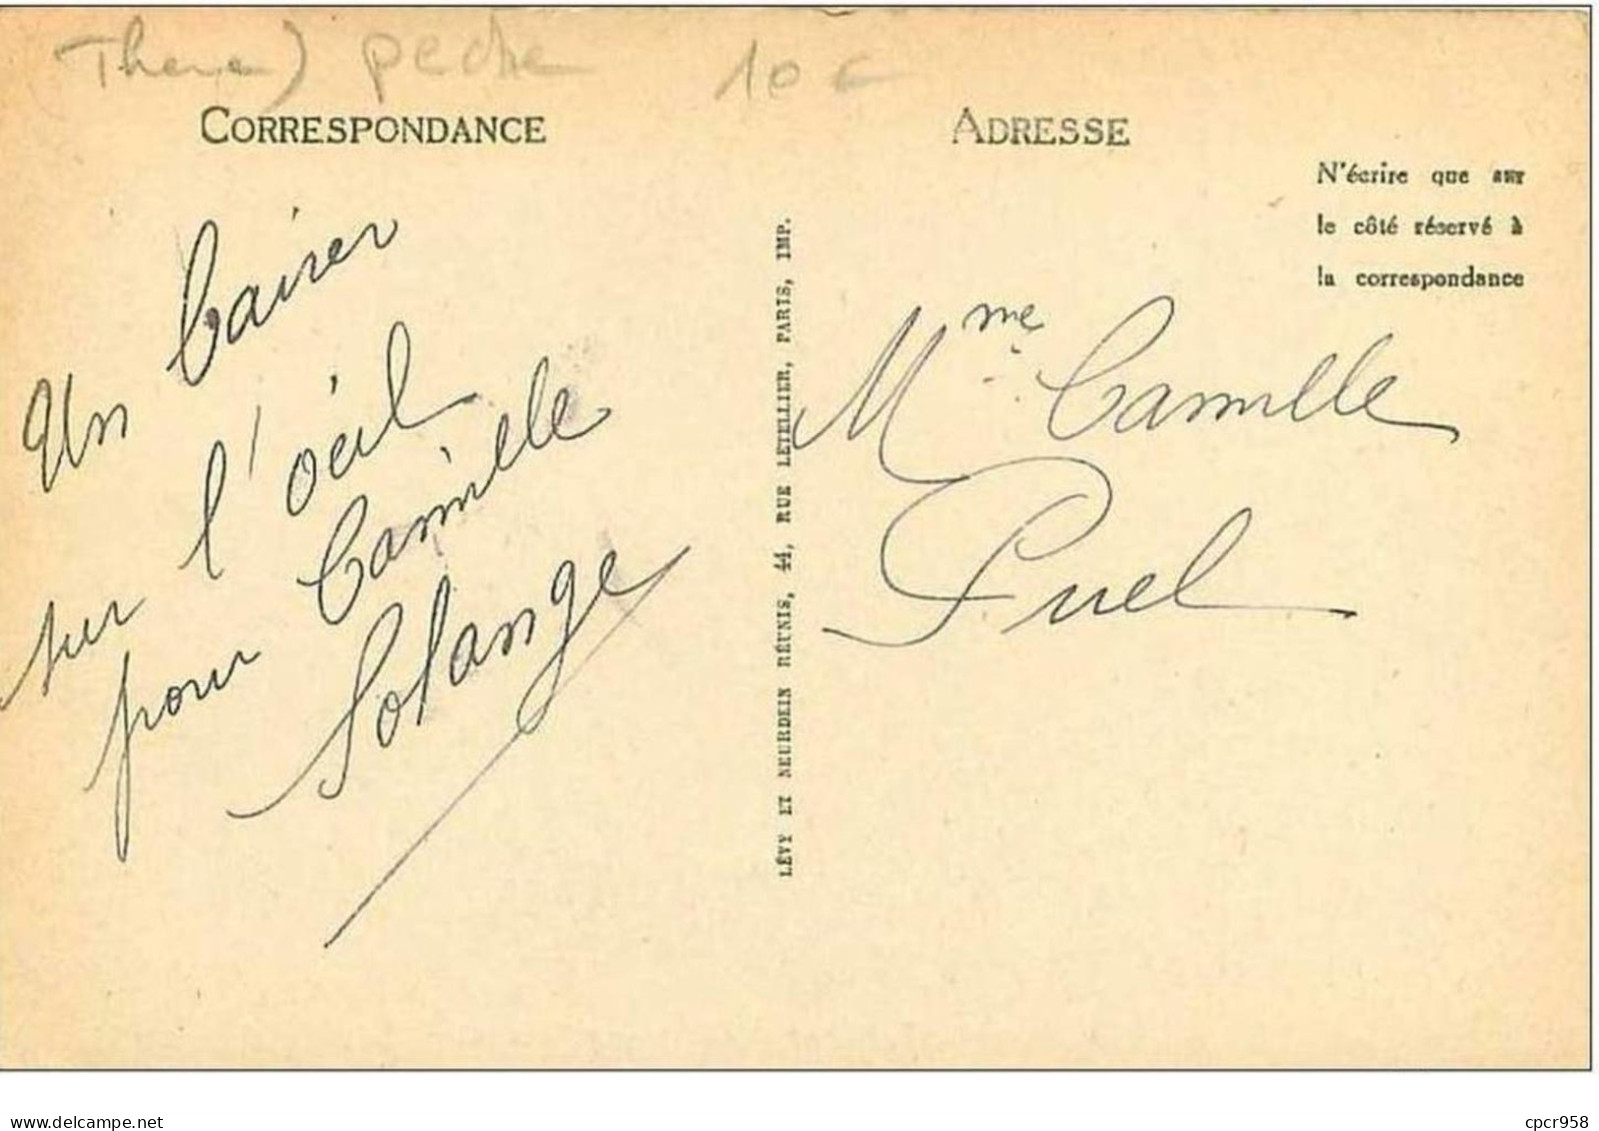 (Thème) pêche 10 c
CORRESPONDANCE
ADRESSE
N'écrire que sur
le côté réservé à
la correspondance
Un baiser
sur l'oeil
pour Camille
Solange
LÉVY ET NEURDEIN RÉUNIS, 44, RUE LETELLIER, PARIS, IMP.
Mme Camille
Puel
www.delcampe.net
cpcr958